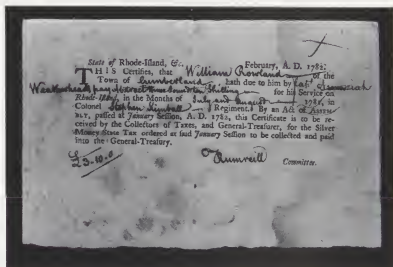 State of Rhode-Island, &c. February, A. D. 1782.
THIS Certifies, that William Rowland of the
Town of Cumberland hath due to him by Capt Jeremiah
Weatherhead pay Rool three Shillings for his Service on
Rhode-Island, in the Months of July and August 1781, in
Colonel Stephen Kimball Regiment. By an Act of Assem
bly, passed at January Session, A. D. 1782, this Certificate is to be re-
ceived by the Collectors of Taxes, and General-Treasurer, for the Silver
Money State Tax ordered at said January Session to be collected and paid
into the General-Treasury.
£3-10-0
Rumreill Committee.